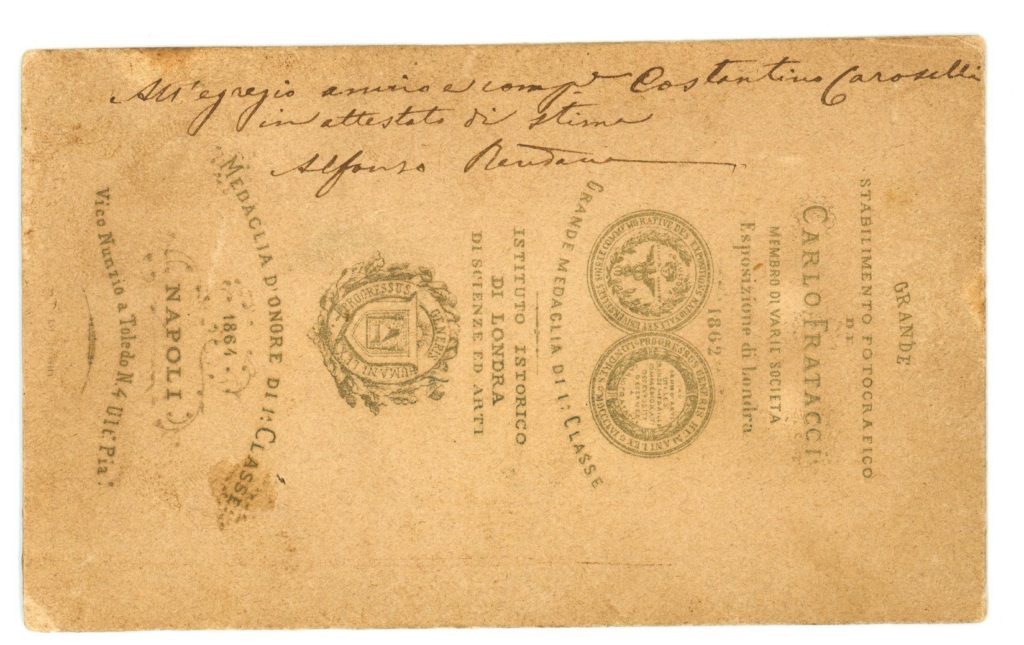 All'egregio amico e comp.e Costantino Caroselli
in attestato di stima
Alfonso Rendano
GRANDE
STABILIMENTO FOTOGRAFICO
DI
CARLO FRATACCI
MEMBRO DI VARIE SOCIETÀ
Esposizione di Londra
1862
GRANDE MEDAGLIA DI 1ª CLASSE
ISTITUTO ISTORICO
DI LONDRA
DI SCIENZE ED ARTI
PROGRESSUS GENERIS HUMANI LEX
MEDAGLIA D'ONORE DI 1ª CLASSE
1864
NAPOLI
Vico Nunzio a Toledo N. 4 Ult. Pia.